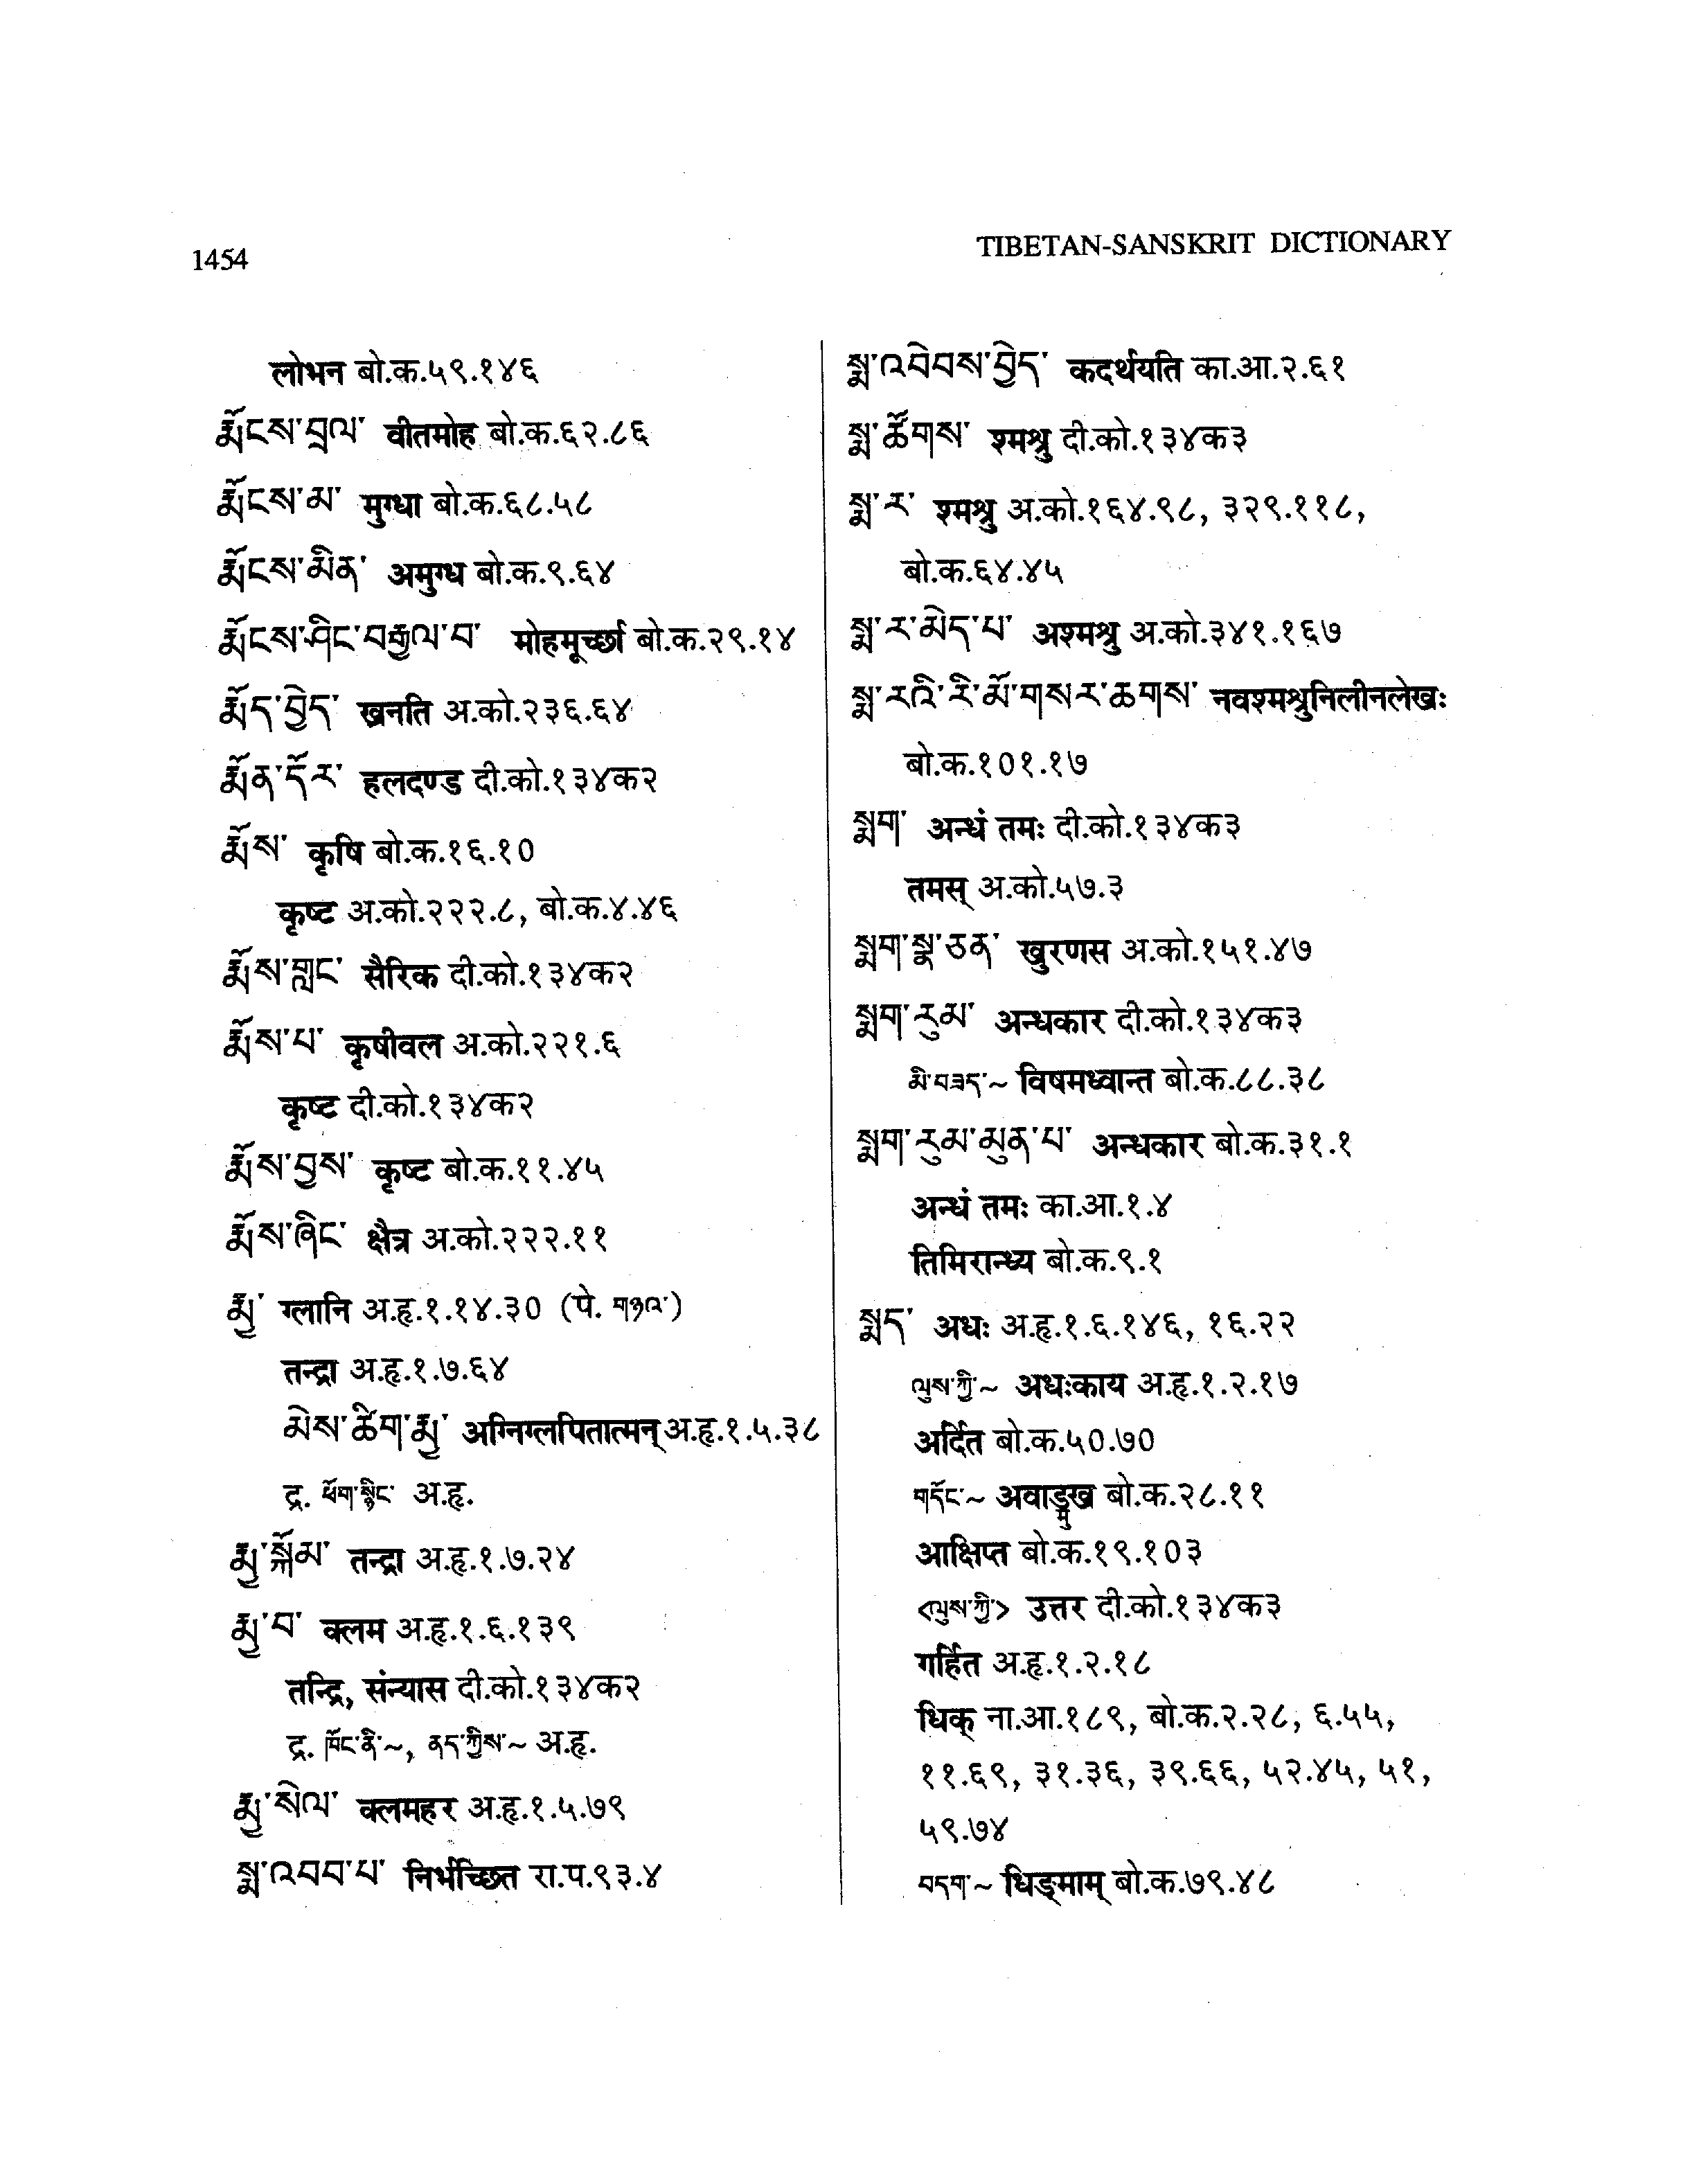 1454
TIBETAN-SANSKRIT DICTIONARY
लोभन बो.क.५९.१४६
རྨོངས་བྲལ་ वीतमोह बो.क.६२.८६
རྨོངས་མ་ मुग्धा बो.क.६८.५८
རྨོངས་མིན་ अमुग्ध बो.क.९.६४
རྨོངས་ཤིང་བརྒྱལ་བ་ मोहमूर्च्छा बो.क.२९.१४
རྨོད་བྱེད་ खनति अ.को.२३६.६४
རྨོན་དོར་ हलदण्ड दी.को.१३४क२
རྨོས་ कृषि बो.क.१६.१०
कृष्ट अ.को.२२२.८, बो.क.४.४६
རྨོས་གླང་ सैरिक दी.को.१३४क२
རྨོས་པ་ कृषीवल अ.को.२२१.६
कृष्ट दी.को.१३४क२
རྨོས་བྱས་ कृष्ट बो.क.११.४५
རྨོས་ཞིང་ क्षैत्र अ.को.२२२.११
རྨྱ་ ग्लानि अ.हृ.१.१४.३० (पे. གཉའ་)
तन्द्रा अ.हृ.१.७.६४
མེས་ཚིག་རྨྱ་ अग्निग्लपितात्मन् अ.हृ.१.५.३८
द्र. ཕོག་སྙིང་ अ.हृ.
རྨྱ་སྐོམ་ तन्द्रा अ.हृ.१.७.२४
རྨྱ་བ་ क्लम अ.हृ.१.६.१३९
तन्द्रि, संन्यास दी.को.१३४क२
द्र. ཁོང་ནི་~, ནད་ཀྱིས་~ अ.हृ.
རྨྱ་སེལ་ क्लमहर अ.हृ.१.५.७९
སྨ་འབབ་པ་ निर्भच्छित रा.प.९३.४
སྨ་འབེབས་བྱེད་ कदर्थयति का.आ.२.६१
སྨ་ཚོགས་ श्मश्रु दी.को.१३४क३
སྨ་ར་ श्मश्रु अ.को.१६४.९८, ३२९.११८,
बो.क.६४.४५
སྨ་ར་མེད་པ་ अश्मश्रु अ.को.३४१.१६७
སྨ་རའི་རི་མོ་གསར་ཆགས་ नवश्मश्रुनिलीनलेखः
बो.क.१०१.१७
སྨག་ अन्धं तमः दी.को.१३४क३
तमस् अ.को.५७.३
སྨག་སྣ་ཅན་ खुरणस अ.को.१५१.४७
སྨག་རུམ་ अन्धकार दी.को.१३४क३
མི་བཟད་~ विषमध्वान्त बो.क.८८.३८
སྨག་རུམ་མུན་པ་ अन्धकार बो.क.३१.१
अन्धं तमः का.आ.१.४
तिमिरान्ध्य बो.क.९.१
སྨད་ अधः अ.हृ.१.६.१४६, १६.२२
ལུས་ཀྱི་~ अधःकाय अ.हृ.१.२.१७
अर्दित बो.क.५०.७०
གདོང་~ अवाङ्मुख बो.क.२८.११
आक्षिप्त बो.क.१९.१०३
<ལུས་ཀྱི་> उत्तर दी.को.१३४क३
गर्हित अ.हृ.१.२.१८
धिक् ना.आ.१८९, बो.क.२.२८, ६.५५,
११.६९, ३१.३६, ३९.६६, ५२.४५, ५१,
५९.७४
བདག་~ धिङ्माम् बो.क.७९.४८